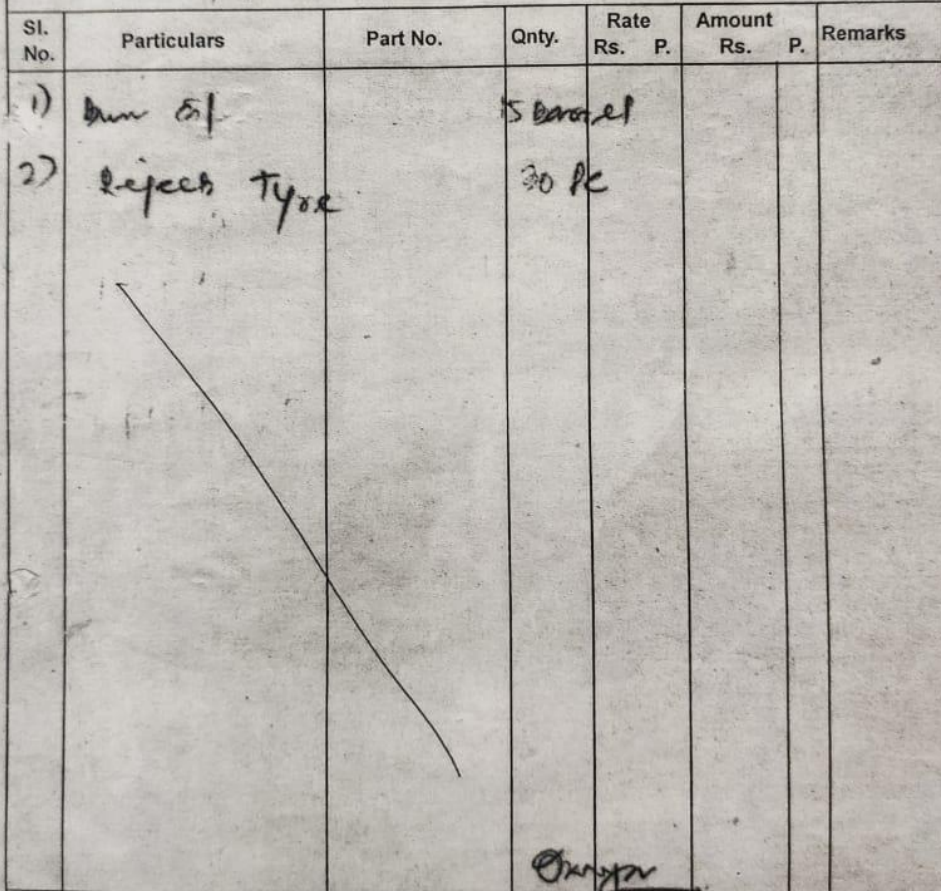 Sl. No. Particulars Part No. Qnty. Rate Rs. P. Amount Rs. P. Remarks
1) 15 barrel
2) Reject Tyre 30 Pc